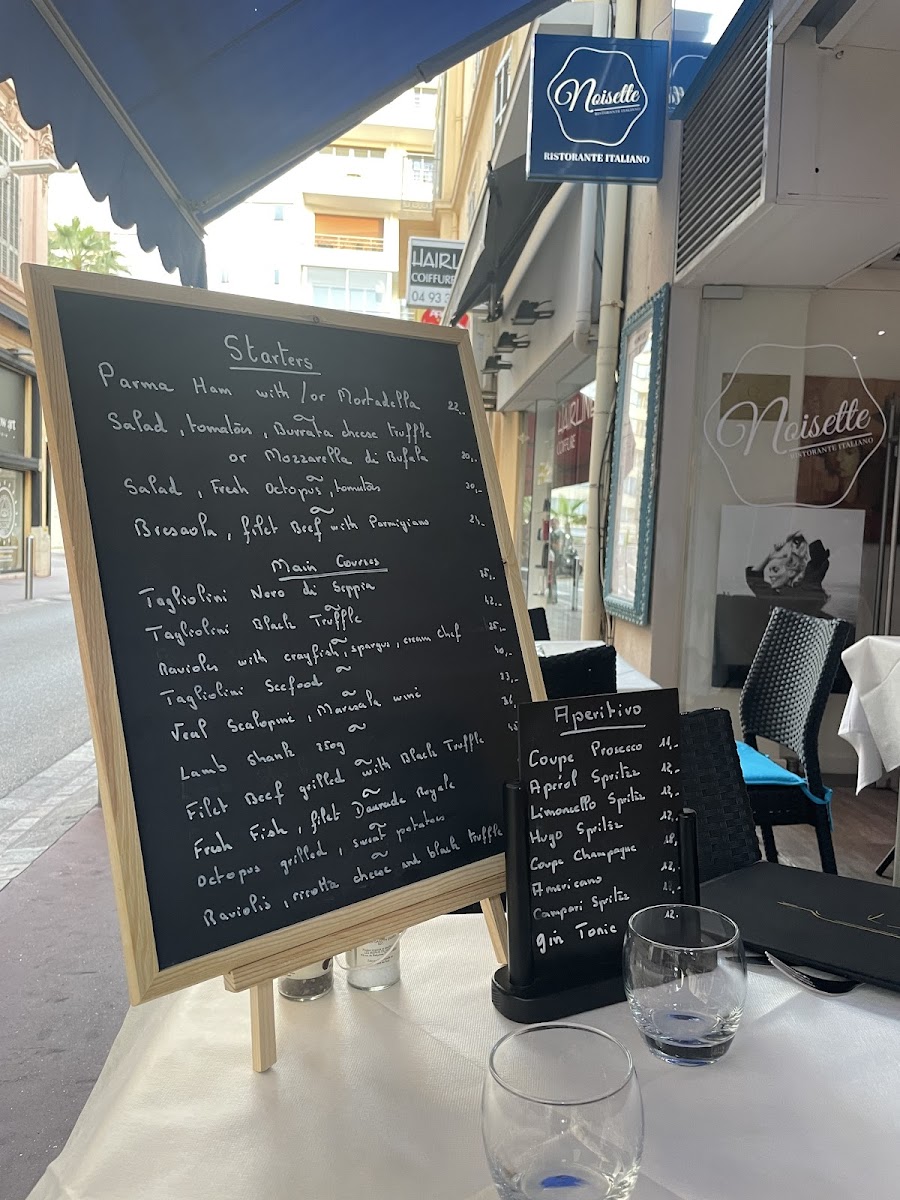 Noisette
RISTORANTE ITALIANO
RISTORANTE ITALIANO
COIFFURE
04 93 3
HAIRLINE
COIFFURE
Noisette
RISTORANTE ITALIANO
Starters
Parma Ham with / or Mortadella 22,-
Salad , tomatoes , Burrata cheese truffle
or Mozzarella di Bufala 20,-
Salad , Fresh Octopus , tomatoes 20,-
Bresaola , filet Beef with Parmigiano 24,-
Main Courses
Tagliolini Nero di Seppia 35,-
Tagliolini Black Truffle 42,-
Ravioles with crayfish , spargus , cream chef 35,-
Tagliolini Seefood 40,-
Veal Scalopine , Marsala wine 33,-
Lamb Shank 350g 36,-
Filet Beef grilled with Black Truffle
Fresh Fish , filet Daurade Royale
Octopus grilled , sweat potatoes
Raviolis , ricotta cheese and black truffle
Aperitivo
Coupe Prosecco 11,-
Aperol Spritz 12,-
Limoncello Spritz 12,-
Hugo Spritz 12,-
Coupe Champagne 18,-
Americano 12,-
Campari Spritz
gin Tonic 12,-